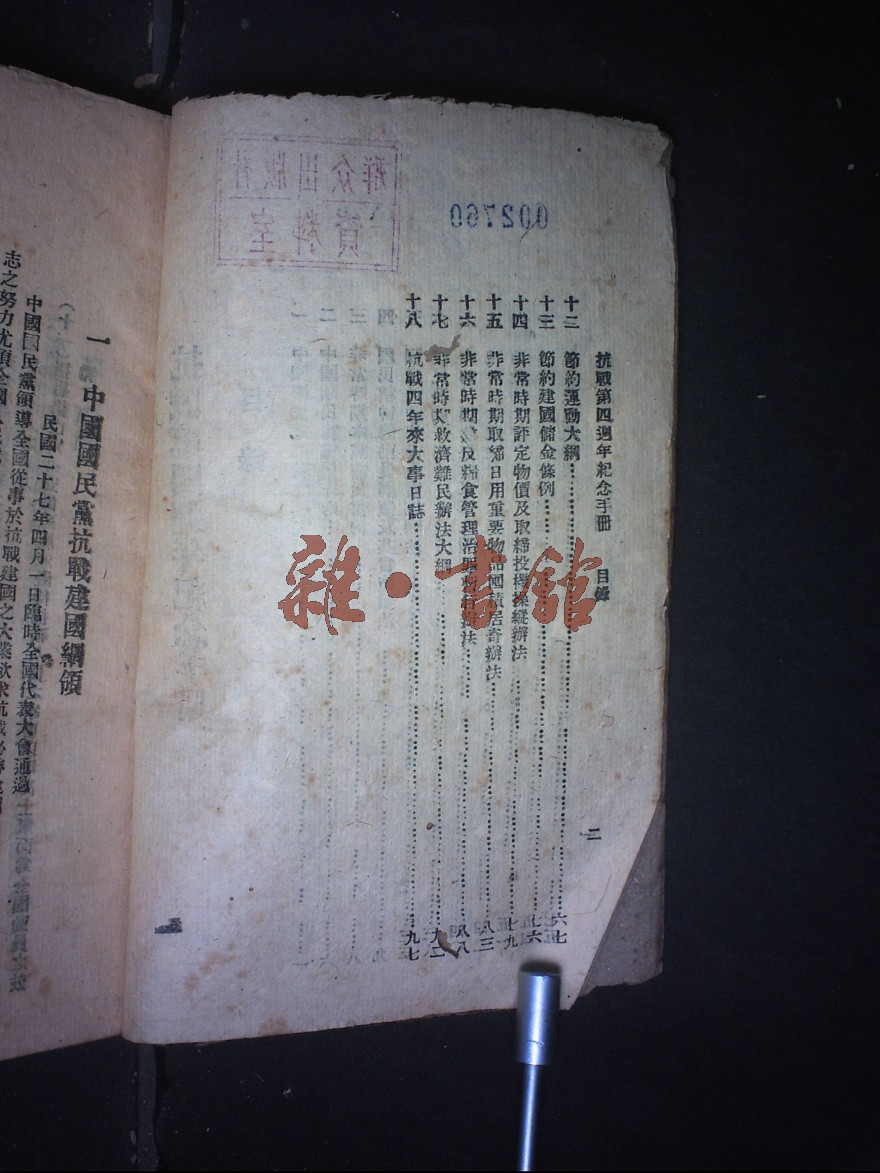 抗戰第四週年紀念手冊 目錄
二
十二 節約運動大綱 六七
十三 節約建國儲金條例 七六
十四 非常時期評定物價及取締投機操縱辦法 七九
十五 非常時期取締日用重要物品囤積居奇辦法 八三
十六 非常時期違反糧食管理治罪暫行辦法 八八
十七 非常時期救濟難民辦法大綱 九二
十八 抗戰四年來大事日誌 九七
群众出版社
資料室
002760
雜·書館
一 中國國民黨抗戰建國綱領
民國二十七年四月一日臨時全國代表大會通過
中國國民黨領導全國從事於抗戰建國之大業欲求抗戰必勝建
志之努力尤須全國